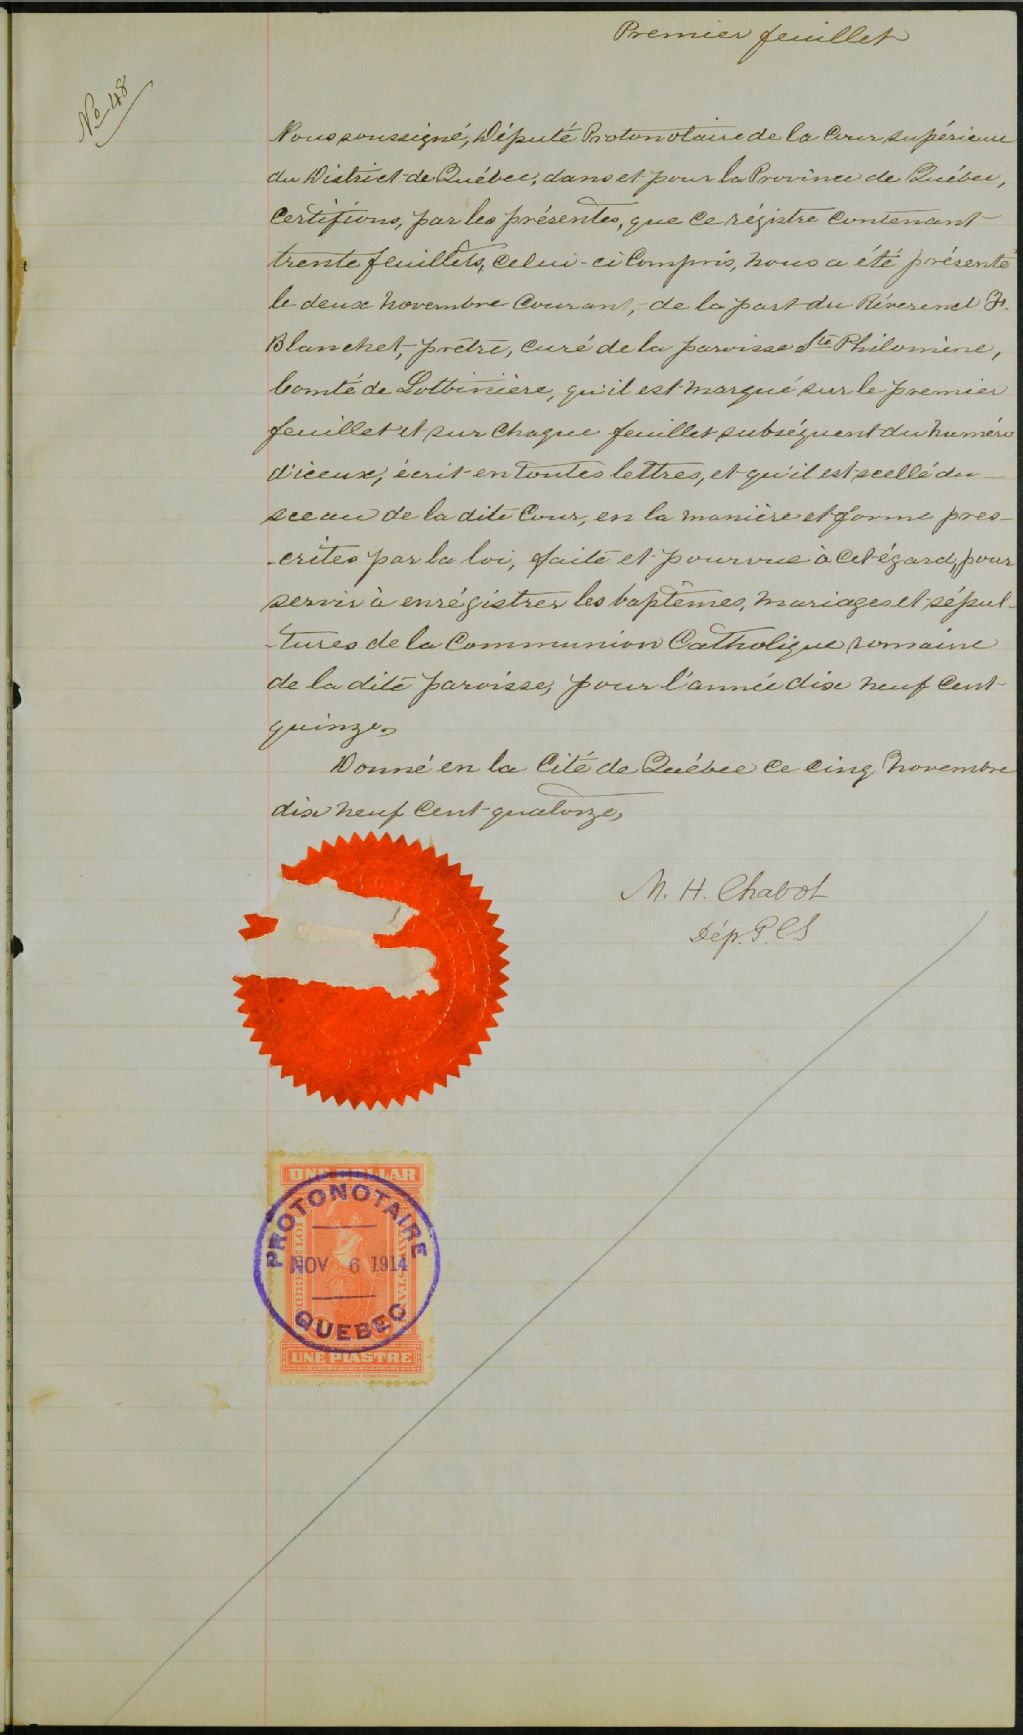 Premier feuillet
No 48
Nous soussigné, Député Protonotaire de la Cour supérieure
du District de Québec, dans et pour la Province de Québec,
certifions, par les présentes, que ce régistre contenant
trente feuillets, celui-ci compris, nous a été présenté
le deux novembre courant, de la part du Révérend
Blanchet, prêtre, curé de la paroisse Ste Philomène,
Comté de Lotbinière, qu'il est marqué sur le premier
feuillet et sur chaque feuillet subséquent du numéro
d'iceux, écrit en toutes lettres, et qu'il est scellé du
sceau de la dite Cour, en la manière et forme pres-
-crites par la loi, faite et pourvue à cet égard, pour
servir à enrégistrer les baptêmes, mariages et sépul-
-tures de la Communion Catholique romaine
de la dite paroisse, pour l'année dix neuf cent
quinze,
Donné en la Cité de Québec ce cinq novembre
dix neuf cent quatorze,
M. H. Chabot
Dép. P. C S
ONE DOLLAR
PROTONOTAIRE
NOV 6 1914
QUEBEC
UNE PIASTRE